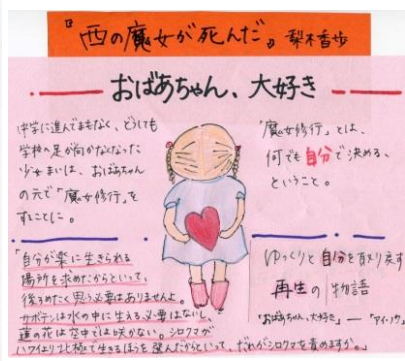 『西の魔女が死んだ』 梨木香歩
おばあちゃん、大好き
中学に進んでまもなく、どうしても
学校へ足が向かなくなった
少女まいは、おばあちゃん
の元で「魔女修行」を
することに。
「魔女修行」とは、
何でも自分で決める、
ということ。
「自分が楽に生きられる
場所を求めたからといって、
後ろめたく思う必要はありませんよ。
サボテンは水の中に生える必要はないし、
蓮の花は空中では咲かない。シロクマが
ハワイより北極で生きるほうを選んだからといって、だれがシロクマを責めますか。」
ゆっくりと自分を取り戻す
再生の物語
「おばあちゃん、大好き」―「アイ・ノウ」